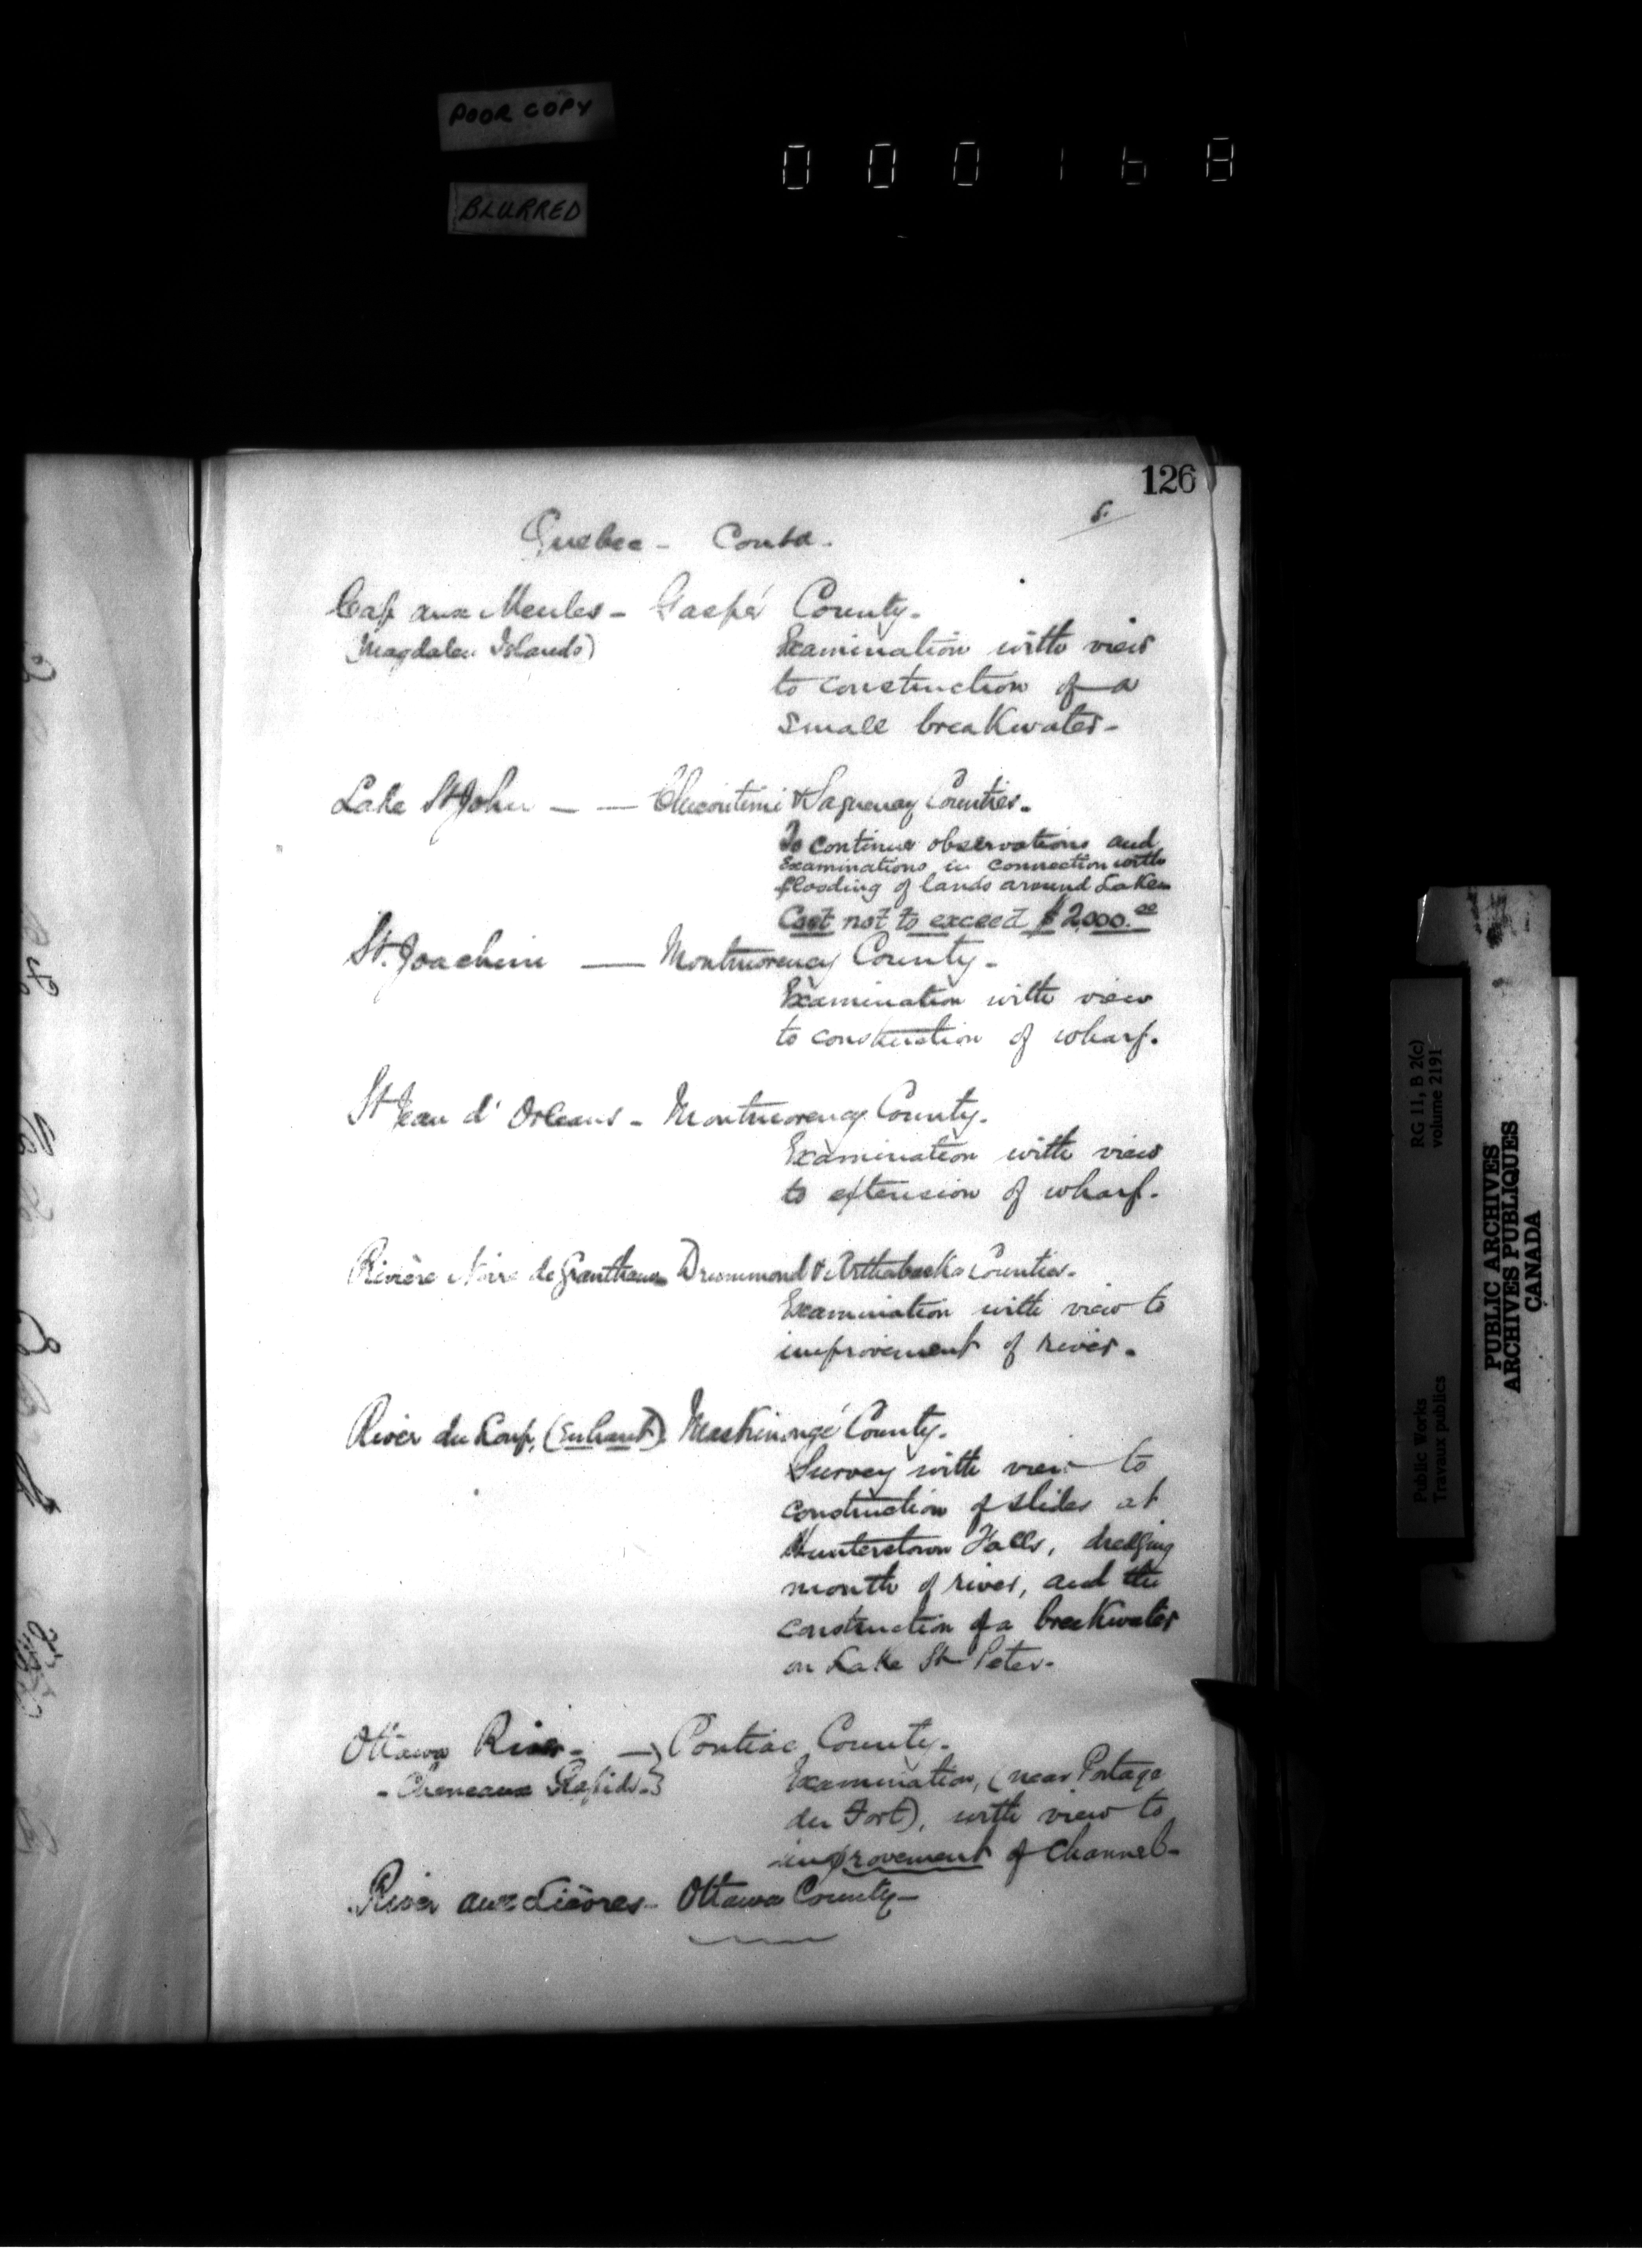 POOR COPY
BLURRED
000168
126
5.
Quebec - Contd.
Cap aux Meules - Gaspé County.
(Magdalen Islands)
Examination with view
to construction of a
small breakwater-
Lake St John - - Chicoutimi & Saguenay Counties.
To continue observations and
examinations in connection with
flooding of lands around Lake.
Cost not to exceed $2,000.00
St. Joachim - Montmorency County.
Examination with view
to construction of wharf.
St Jean d' Orleans - Montmorency County.
Examination with view
to extension of wharf.
Rivière Noire de Grantham Drummond & Arthabaska Counties.
Examination with view to
improvement of river.
River du Loup, (en haut) Maskinongé County.
Survey with view to
construction of slides at
Hunterstown Falls, dredging
mouth of river, and the
construction of a breakwater
on Lake St Peter.
Ottawa River - } Pontiac County.
- Cheneaux Rapids - }
Examination, (near Portage
du Fort), with view to
improvement of Channel-
River aux Lièvres - Ottawa County-
RG 11, B 2(c)
volume 2191
Public Works
Travaux publics
PUBLIC ARCHIVES
ARCHIVES PUBLIQUES
CANADA